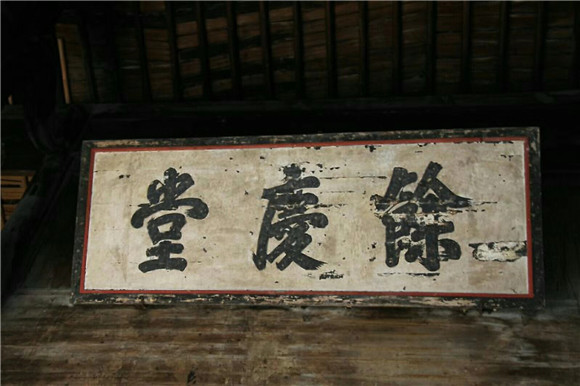 餘慶堂